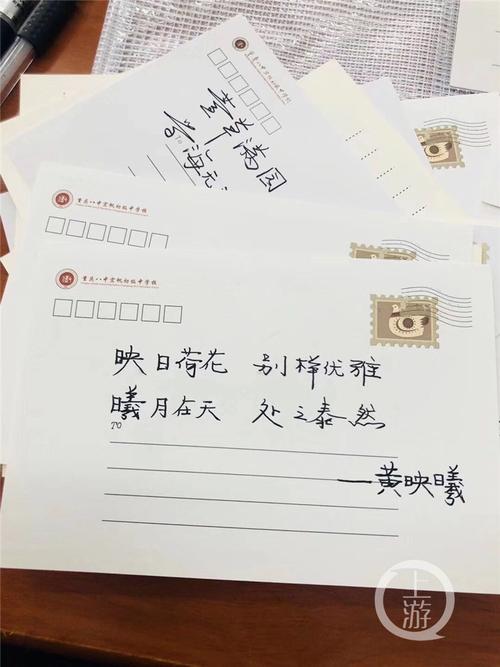 重庆八中宏帆初级中学校
草满园
TO
学海无
重庆八中宏帆初级中学校
重庆八中宏帆初级中学校
映日荷花 别样优雅
曦月在天 处之泰然
TO
—黄映曦
上游